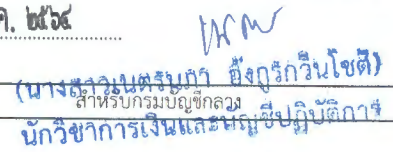 ค. ๒๕๖๔
(นางสาวเนตรนภา อังกูรกวินโชติ)
สำหรับกรมบัญชีกลาง
นักวิชาการเงินและบัญชีปฏิบัติการ